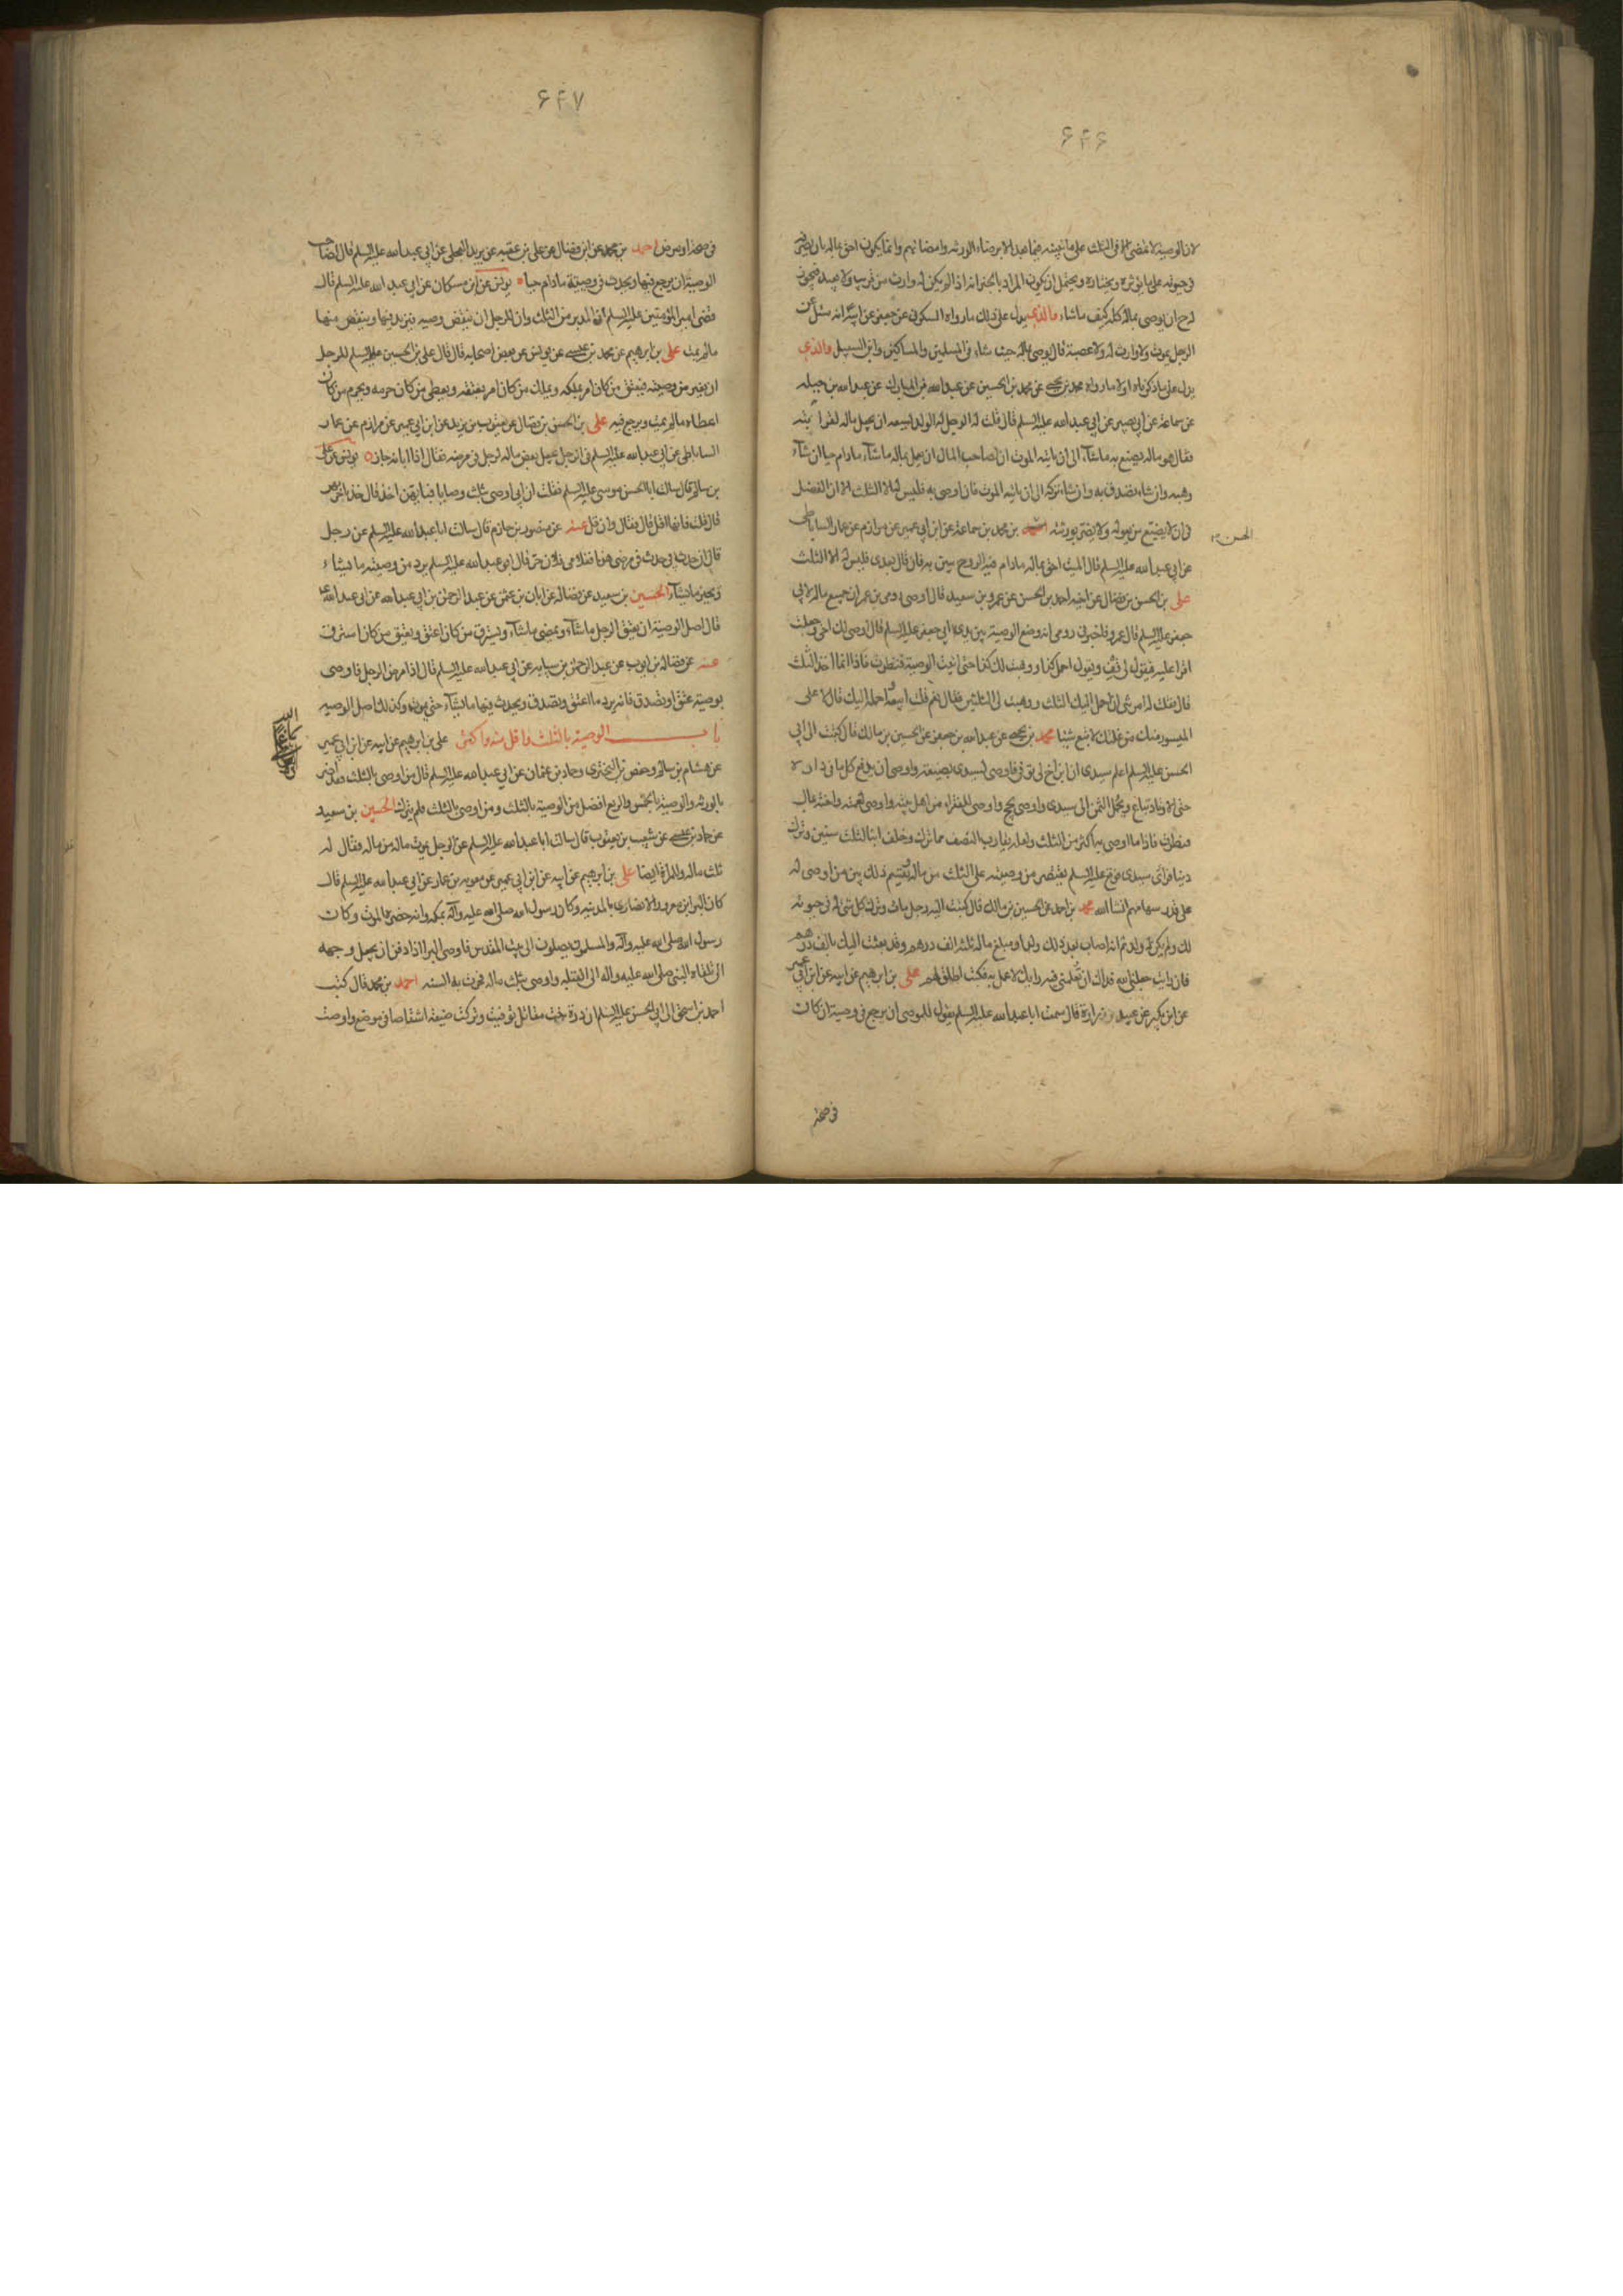 ۶۴۶
لان الوصية لا تمضي الا في الثلث على ما نبينه فيما بعد الا برضاء الورثة وامضائهم وانما يكون احق بماله بان يصرفه
في حيوته على ما يؤثره ويختاره ويحتمل ان يكون المراد بالخبر انه اذا لم يكن له وارث من قريب ولا بعيد فيجوز
له ح ان يوصي بماله كله كيف ما شاء والذي يدل على ذلك ما رواه السكوني عن جعفر عن ابيه انه سئل عن
الرجل يموت ولا وارث له ولا عصبة قال يوصي بماله حيث شاء في المسلمين والمساكين وابن السبيل والذي
يدل على ما ذكرناه اولا ما رواه محمد بن يحيى عن محمد بن الحسين عن عبد الله بن المبارك عن عبد الله بن جبلة
عن سماعة عن ابي بصير عن ابي عبد الله عليه السلم قال قلت له الرجل له الولد ايسعه ان يجعل ماله لقرابته
فقال هو ماله يصنع به ما شآء الى ان ياتيه الموت ان لصاحب المال ان يعمل بماله ما شآء ما دام حيا ان شآء
وهبه وان شاء تصدق به وان شاء تركه الى ان ياتيه الموت فان اوصى به فليس له الا الثلث الا ان الفضل
في ان لا يضيع من يعوله ولا يضر بورثته بن محمد بن سماعة عن ابن ابي عمير عن مرازم عن عمار الساباطي
الحسن
عن ابي عبد الله عليه السلم قال الميت احق بماله ما دام فيه الروح يبين به فان قال بعدي فليس له الا الثلث
علي بن الحسن بن فضال عن اخيه احمد بن الحسن عن عمرو بن سعيد قال اوصى رومي بن عمران جميع ماله لابي
جعفر عليه السلم قال عمرو فاخبرني رومي انه وضع الوصية بين يدي ابي جعفر عليه السلم فقال هذا ما اوصى لك اخي وجعلت
اقرا عليه فيقول لي قف ويقول احمل كذا ووهبت لك كذا حتى اتيت الوصية فنظرت فاذا انما اخذ الثلث
قال فقلت له امرتني ان احمل اليك الثلث ووهبت لي الثلثين فقال نعم قلت ابيعه واحمله اليك قال لا على
الميسور منك من غلتك لا تبع شيئا محمد بن يحيى عن عبد الله بن جعفر عن الحسين بن مالك قال كتبت الى ابي
الحسن عليه السلم اعلم سيدي ان ابن اخ لي توفي فاوصى لسيدي بضيعة واوصى ان يدفع كل ما في داره
حتى الاوتاد تباع ويحمل الثمن الى سيدي واوصى بحج واوصى للفقراء من اهل بيته واوصى لعمته واخته بمال
فنظرت فاذا ما اوصى به اكثر من الثلث ولعله يقارب النصف مما ترك وخلف ابنا لثلث سنين وترك
دينا فراي سيدي فوقع عليه السلم يقتصر من وصيته على الثلث من ماله ويقسم ذلك بين من اوصى له
على قدر سهامهم انشا الله محمد بن احمد عن الحسين بن مالك قال كتبت اليه رجل مات وترك كل شئ له في حيوته
لك ولم يكن له ولد ثم انه اصاب بعد ذلك ولدا ومبلغ ماله ثلثة الف درهم وقد بعثت اليك بالف درهم
فان رايت جعلني الله فداك ان تعلمني فيه رايك لاعمل به فكتب اطلق لهم علي بن ابرهيم عن ابيه عن ابن ابي عمير
عن ابن بكير عن عبيد بن زرارة قال سمعت ابا عبد الله عليه السلم يقول للموصي ان يرجع في وصيته ان كان
في صحة
۶۴۷
في صحة او مرض احمد بن محمد عن ابن فضال عن علي بن عقبة عن بريد العجلي عن ابي عبد الله عليه السلم قال لصاحب
الوصية ان يرجع فيها ويحدث في وصيته ما دام حيا يونس عن ابن مسكان عن ابي عبد الله عليه السلم قال
قضى امير المؤمنين عليه السلم ان المدبر من الثلث وان للرجل ان ينقض وصيته فيزيد فيها وينقص منها
ما لم يمت علي بن ابرهيم عن محمد بن عيسى عن يونس عن بعض اصحابه قال قال علي بن الحسين عليه السلم للرجل
ان يغير من وصيته فيعتق من كان امر بملكه ويملك من كان امر بعتقه ويعطي من كان حرمه ويحرم من كان
اعطاه ما لم يمت ويرجع فيه علي بن الحسن بن فضال عن يعقوب بن يزيد عن ابن ابي عمير عن مرازم عن عمار
الساباطي عن ابي عبد الله عليه السلم في الرجل يجعل بعض ماله لرجل في مرضه فقال اذا ابانه جاز يونس عن علي
بن سالم قال سالت ابا الحسن موسى عليه السلم فقلت ان ابي اوصى بثلث وصايا فبايهن اخذ قال خذ باخرهن
قال قلت فانها اقل قال فقال وان قل عنه عن منصور بن حازم قال سالت ابا عبد الله عليه السلم عن رجل
قال ان حدث بي حدث في مرضي هذا فغلامي فلان حر قال ابو عبد الله عليه السلم يرد من وصيته ما يشاء
ويجيز ما يشآء الحسين بن سعيد عن فضالة عن ابان بن عثمن عن عبد الرحمن بن ابي عبد الله عن ابي عبد الله ع
قال اصل الوصية ان يعتق الرجل ما شآء ويمضي ما شآء ويسترق من كان اعتق ويعتق من كان استرق
عنه عن فضالة بن ايوب عن عبد الرحمن بن سيابة عن ابي عبد الله عليه السلم قال اذا مرض الرجل فاوصى
بوصية عتق او تصدق فانه يرد ما اعتق وتصدق ويحدث فيها ما يشآء حتى يموت وكذلك اصل الوصية
باب الوصية بالثلث واقل منه واكثر علي بن ابرهيم عن ابيه عن ابن ابي عمير
عن هشام بن سالم وحفص بن البختري وحماد بن عثمان عن ابي عبد الله عليه السلم قال من اوصى بالثلث فقد اضر
بالورثة والوصية بالخمس والربع افضل من الوصية بالثلث ومن اوصى بالثلث فلم يترك الحسين بن سعيد
عن حماد بن عيسى عن شعيب بن يعقوب قال سالت ابا عبد الله عليه السلم عن الرجل يموت ماله من ماله فقال له
ثلث ماله وللمراة ايضا علي بن ابرهيم عن ابيه عن ابن ابي عمير عن معوية بن عمار عن ابي عبد الله عليه السلم قال
كان البرا ابن معرور الانصاري بالمدينة وكان رسول الله صلى الله عليه وآله بمكة وانه حضره الموت وكان
رسول الله صلى الله عليه وآله والمسلمون يصلون الى بيت المقدس فاوصى البرا اذا دفن ان يجعل وجهه
الى تلقاء النبي صلى الله عليه واله الى القبلة واوصى بثلث ماله فجرت به السنة احمد بن محمد قال كتب
احمد بن اسحق الى ابي الحسن عليه السلم ان درة بنت مقاتل توفيت وتركت ضيعة اشقاصا في موضع واوصت